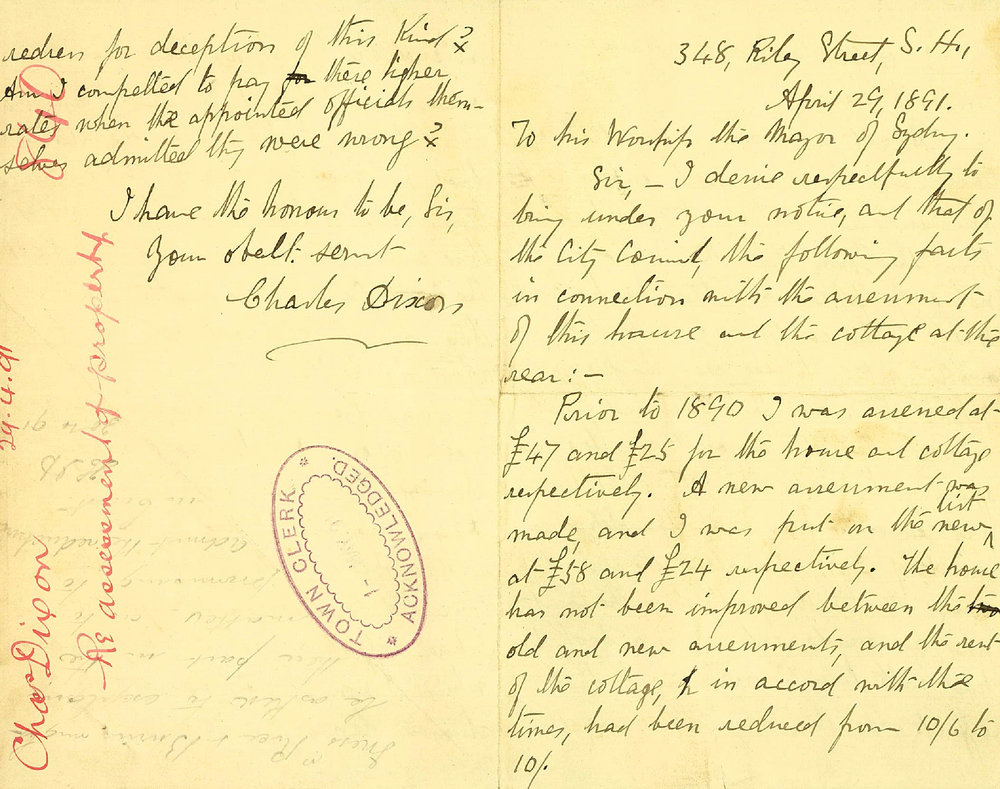 348, Riley Street, S. H.,
April 29, 1891.
To his Worship the Mayor of Sydney.
Sir, — I desire respectfully to
bring under your notice, and that of
the City Council, the following facts
in connection with the assessment
of this house and the cottage at the
rear: —
Prior to 1890 I was assessed at
£47 and £25 for the house and cottage
respectively. A new assessment was
made, and I was put on the new list
at £58 and £24 respectively. The house
has not been improved between the two
old and new assessments, and the rent
of the cottage, in accord with the
times, had been reduced from 10/6 to
10/.
redress for deception of this kind?
Am I compelled to pay for these higher
rates when the appointed officials them-
selves admitted they were wrong?
I have the honour to be, Sir,
Your obedt. servt
Charles Dixon
29.4.91
Chas Dixon
Re assessment of property
TOWN CLERK
ACKNOWLEDGED.